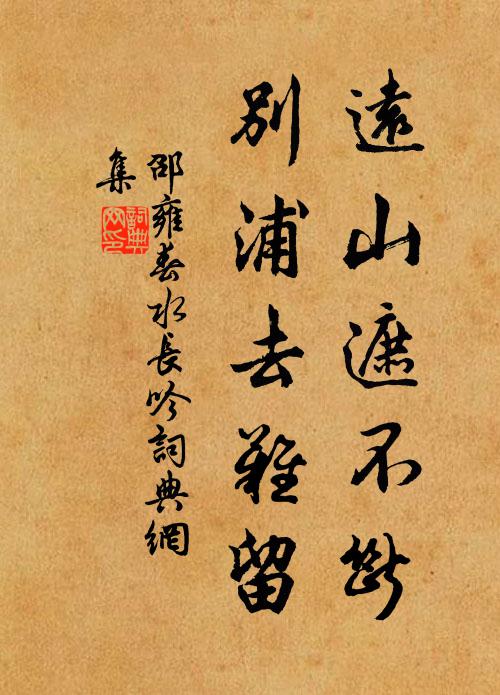 遠山遮不斷
別浦去難留
邵雍春水長吟詞典網
集
詞典網印